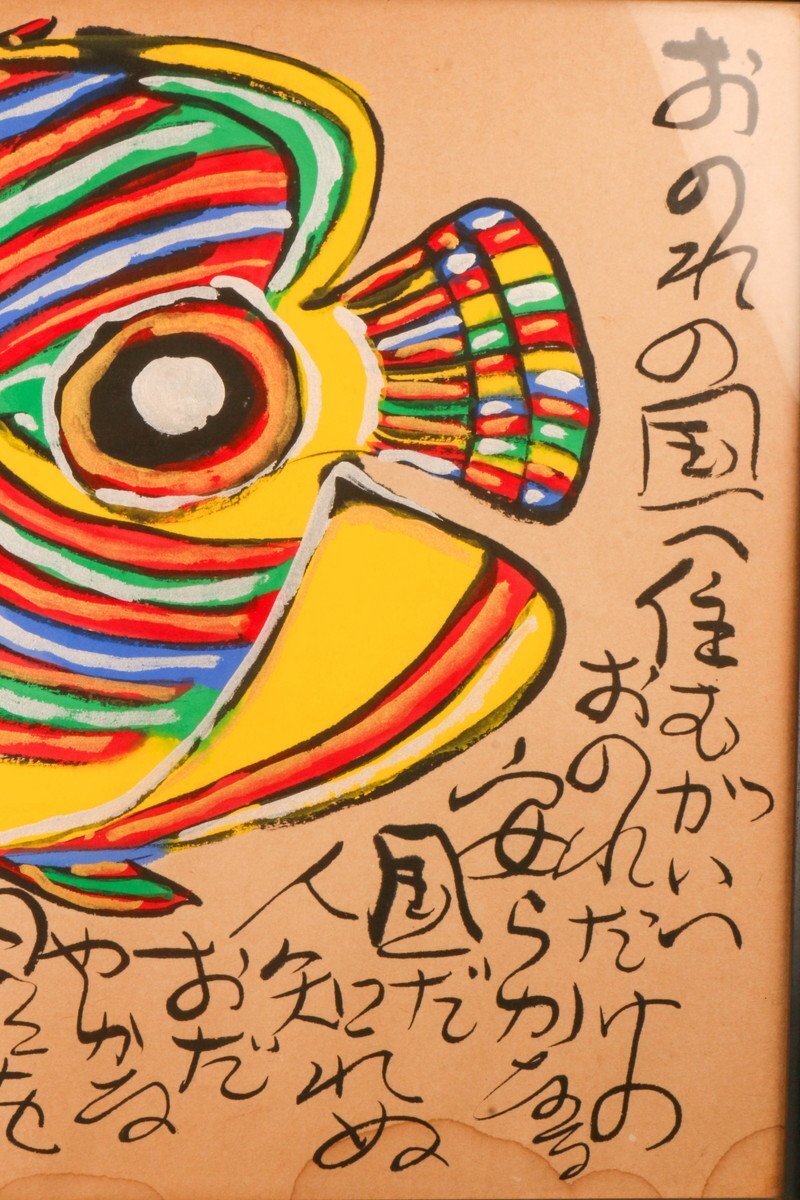 おのれの国へ住むがいい
おのれだけの
安らかなる
国だ
人知れぬ
おだ
やかな